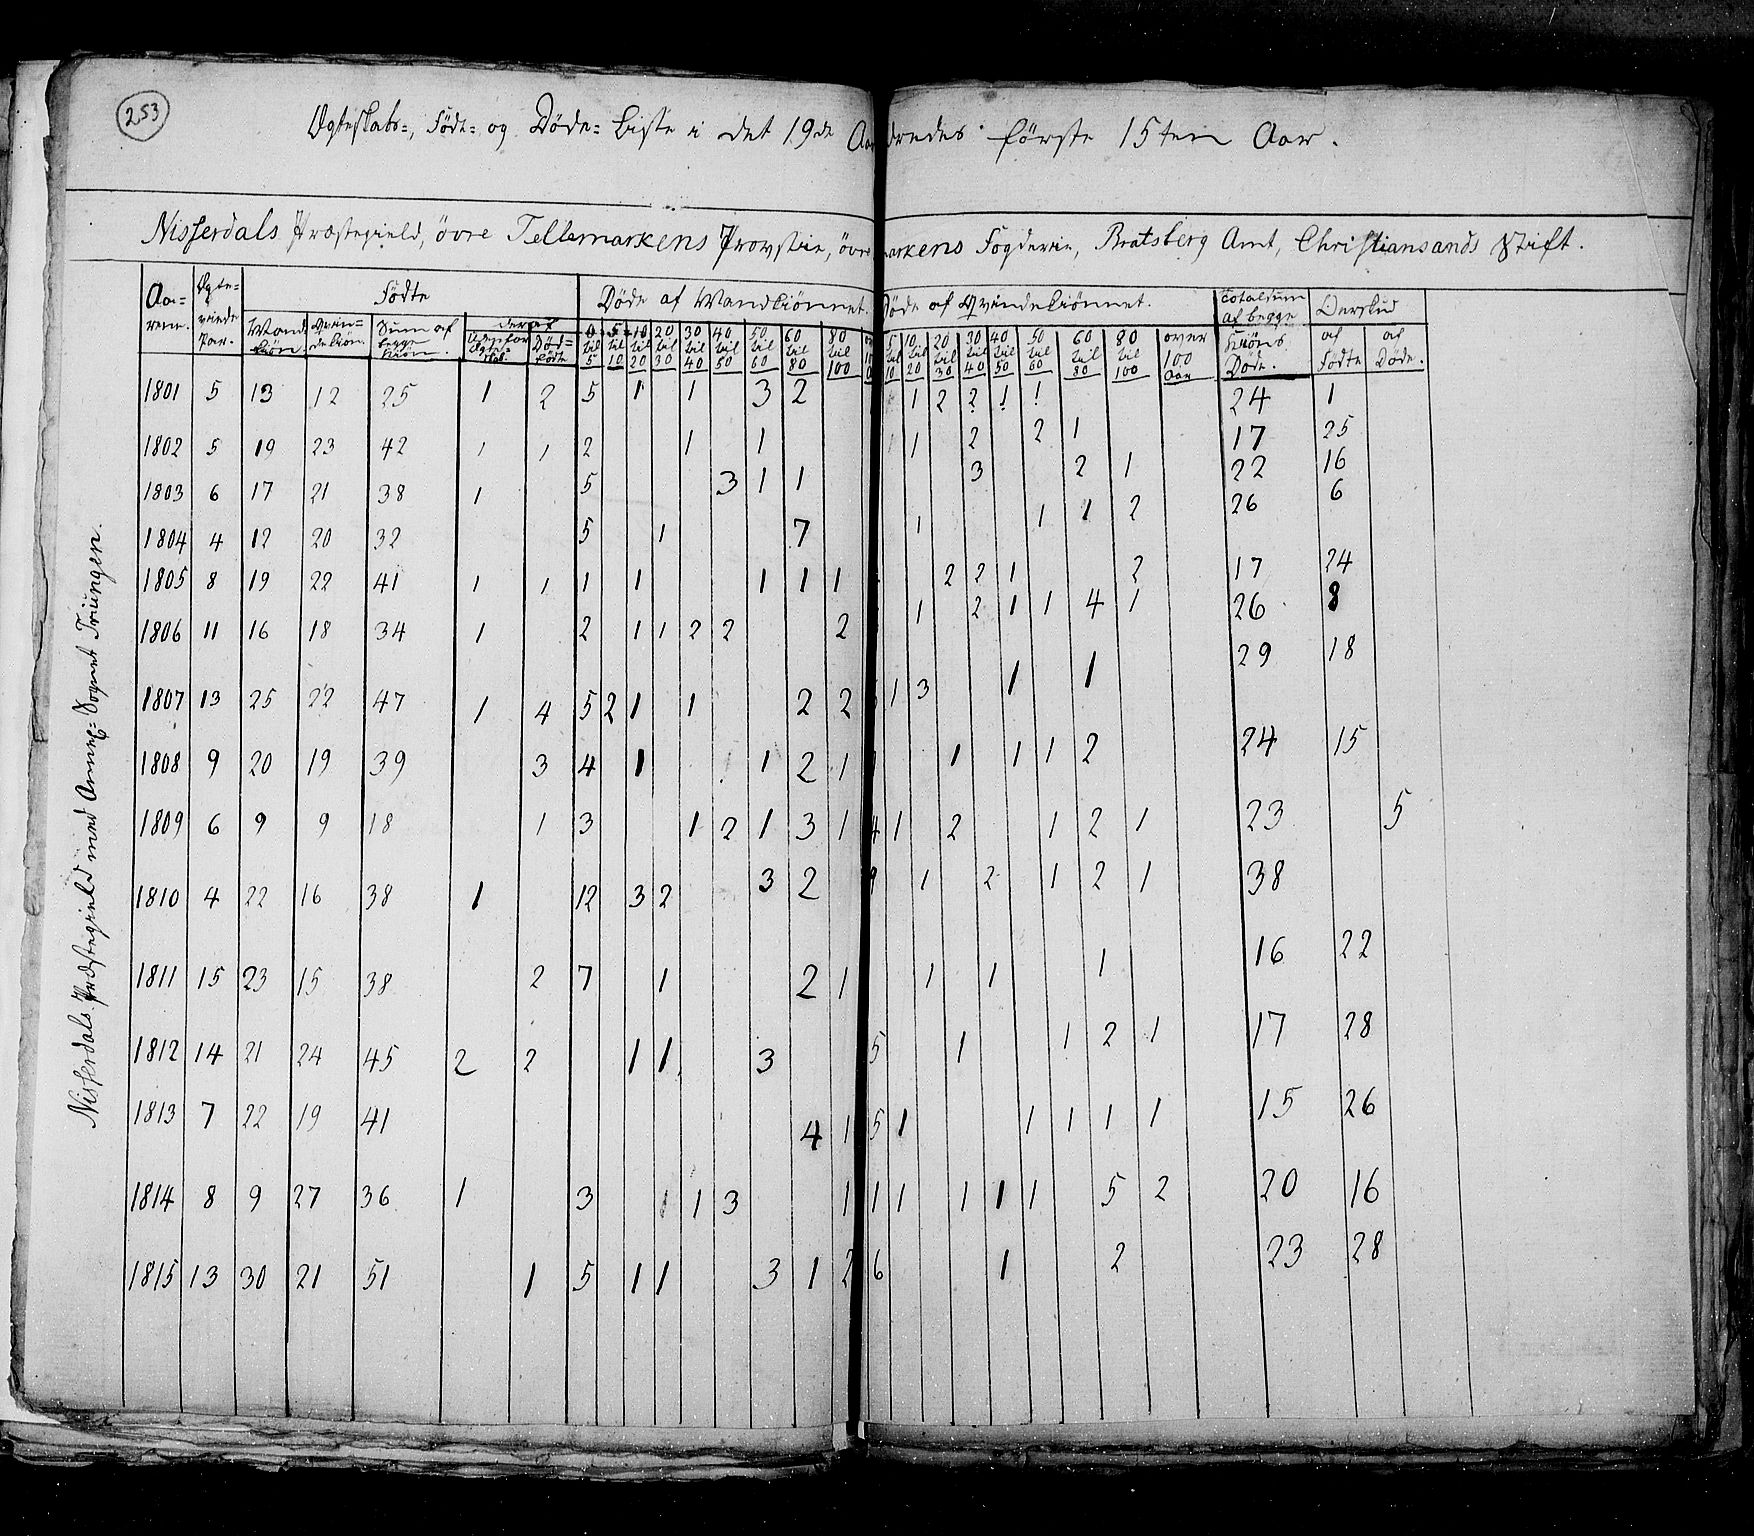 253
Ægteskabs-, Föde- og Döde- Liste i det 19de Aar dredes förste 15ten Aar.
Nisserdals Præstegield, övre Tellemarkens Provstie, övre markens Fogderie, Bratsberg Amt, Christiansands Stift.
Nisserdals Præstegield med Annex-Sognet Triungen.
Aarene. Ægteviede Par. Födte Döde af Mandkiönnet. Döde af Qvindekiönnet. Totalsum af begge Kiöns Döde. Overskud
Mandkiön. Qvindekiön. Sum af begge Kiön. deraf af Födte af Döde.
Udenfor Ægteskab. Dödfödte 0 til 5 5 til 10 10 til 20 20 til 30 30 til 40 40 til 50 50 til 60 60 til 80 80 til 100 5 til 10 10 til 20 20 til 30 30 til 40 40 til 50 50 til 60 60 til 80 80 til 100 over 100 Aar
1801 5 13 12 25 1 2 5 1 1 3 2 1 2 2 1 1 24 1
1802 5 19 23 42 1 1 2 1 1 1 1 2 2 1 17 25
1803 6 17 21 38 1 5 3 1 1 3 2 1 22 16
1804 4 12 20 32 5 1 7 1 1 1 2 26 6
1805 8 19 22 41 1 1 1 1 1 1 1 2 2 1 2 17 24
1806 11 16 18 34 1 2 1 1 2 2 2 1 2 1 1 4 1 26 8
1807 13 25 22 47 1 4 5 2 1 1 2 2 1 3 1 1 29 18
1808 9 20 19 39 3 4 1 1 2 1 1 1 1 2 24 15
1809 6 9 9 18 1 3 1 2 1 3 1 4 1 2 1 2 1 23 5
1810 4 22 16 38 1 12 3 2 3 2 9 1 2 1 2 1 38
1811 15 23 15 38 2 7 1 2 1 1 1 1 16 22
1812 14 21 24 45 2 2 1 1 3 5 1 1 2 1 17 28
1813 7 22 19 41 4 1 5 1 1 1 1 1 15 26
1814 8 9 27 36 1 3 1 1 3 1 1 1 1 1 1 5 2 20 16
1815 13 30 21 51 1 5 1 1 3 1 2 6 1 2 23 28